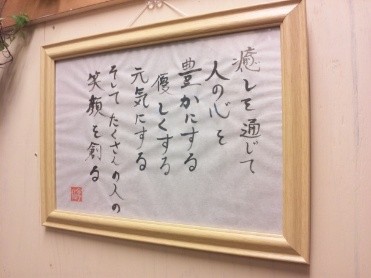 癒しを通じて
人の心を
豊かにする
優しくする
元気にする
そしてたくさんの人の
笑顔を創る